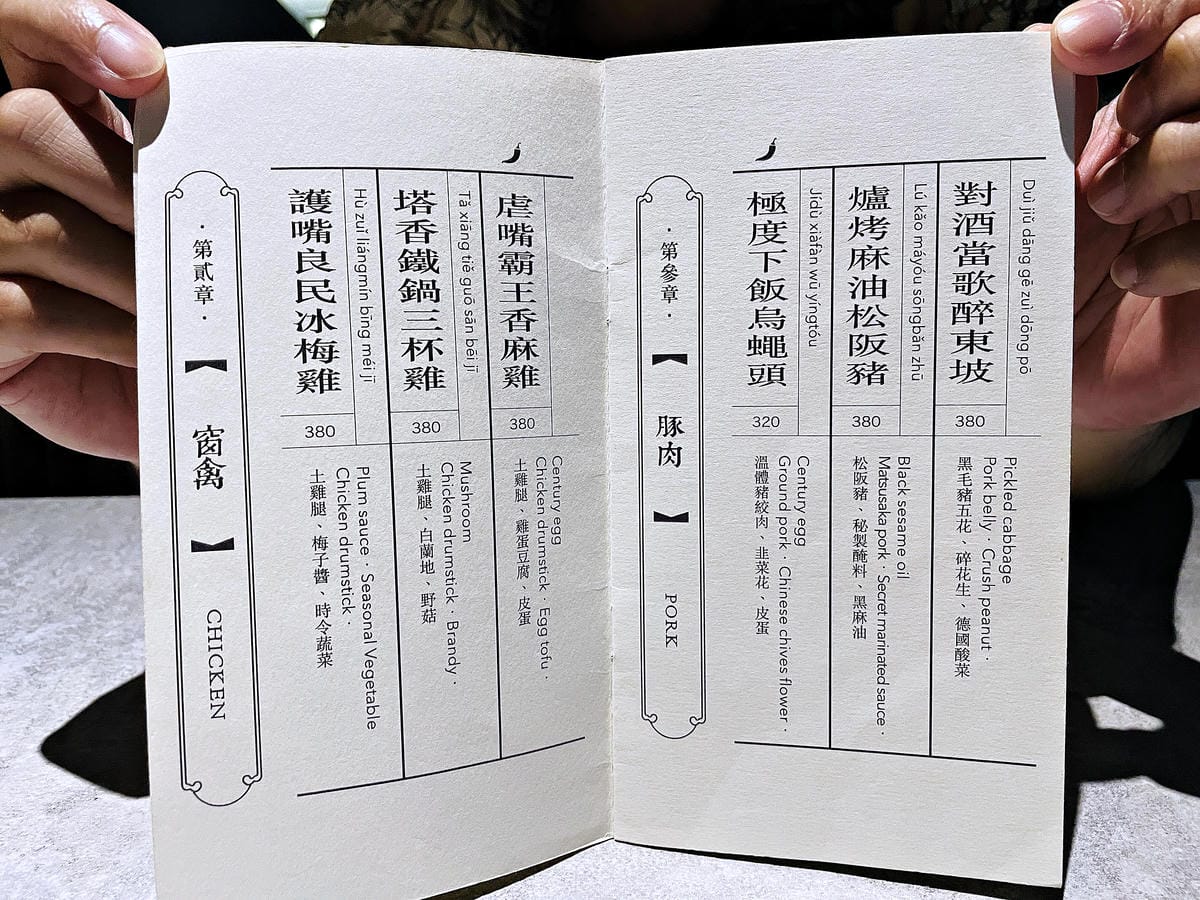 ·第貳章·
【窗禽】
CHICKEN
護嘴良民冰梅雞
Hù zuǐ liángmín bīng méi jī
380
Plum sauce · Seasonal Vegetable
Chicken drumstick ·
土雞腿、梅子醬、時令蔬菜
塔香鐵鍋三杯雞
Tǎ xiāng tiě guō sān bēi jī
380
Mushroom
Chicken drumstick · Brandy ·
土雞腿、白蘭地、野菇
虐嘴霸王香麻雞
380
Century egg
Chicken drumstick · Egg tofu ·
土雞腿、雞蛋豆腐、皮蛋
·第參章·
【豚肉】
PORK
極度下飯烏蠅頭
Jídù xiàfàn wū yíngtóu
320
Century egg
Ground pork · Chinese chives flower ·
溫體豬絞肉、韭菜花、皮蛋
爐烤麻油松阪豬
Lú kǎo máyóu sōngbǎn zhū
380
Black sesame oil
Matsusaka pork · Secret marinated sauce ·
松阪豬、秘製醃料、黑麻油
對酒當歌醉東坡
Duì jiǔ dāng gē zuì dōng pō
380
Pickled cabbage
Pork belly · Crush peanut ·
黑毛豬五花、碎花生、德國酸菜